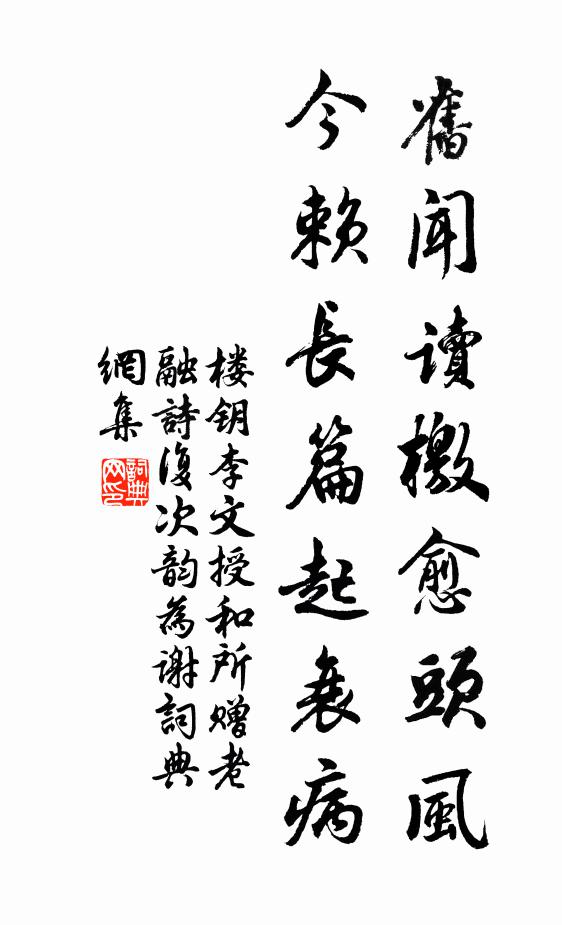 舊聞讀檄愈頭風
今賴長篇起衰病
楼钥李文授和所赠老
融詩復次韵為谢詞典
網集
詞典
网印